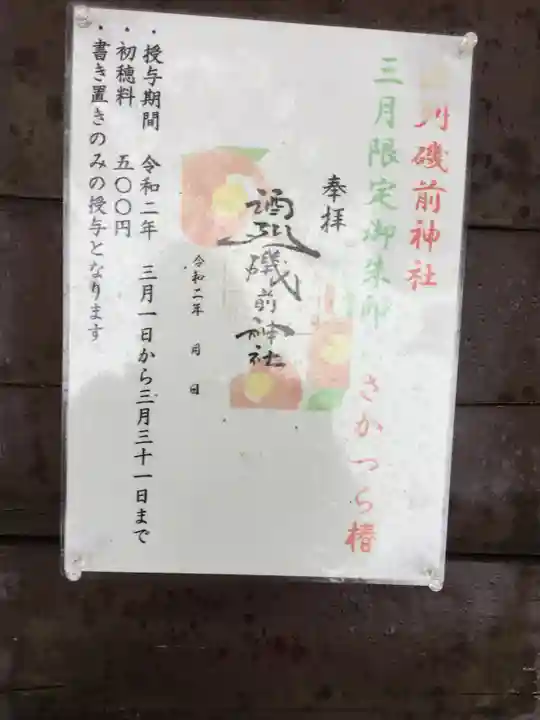 列磯前神社
三月限定御朱印
さかつら椿
奉拝
酒列磯前神社
令和二年 月 日
・授与期間 令和二年 三月一日から三月三十一日まで
・初穂料 五〇〇円
・書き置きのみの授与となります